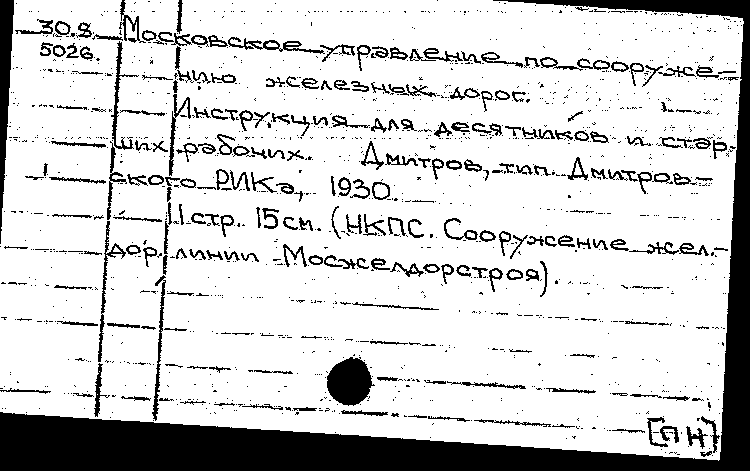 30.8. Московское управление по сооруже-
5026. нию железных дорог.
Инструкция для десятников и стар-
ших рабочих. Дмитров, тип. Дмитров-
ского РИКа, 1930.
11 стр. 15 см. (НКПС. Сооружение жел.-
дор. линии Мосжелдорстроя).
[ПН]